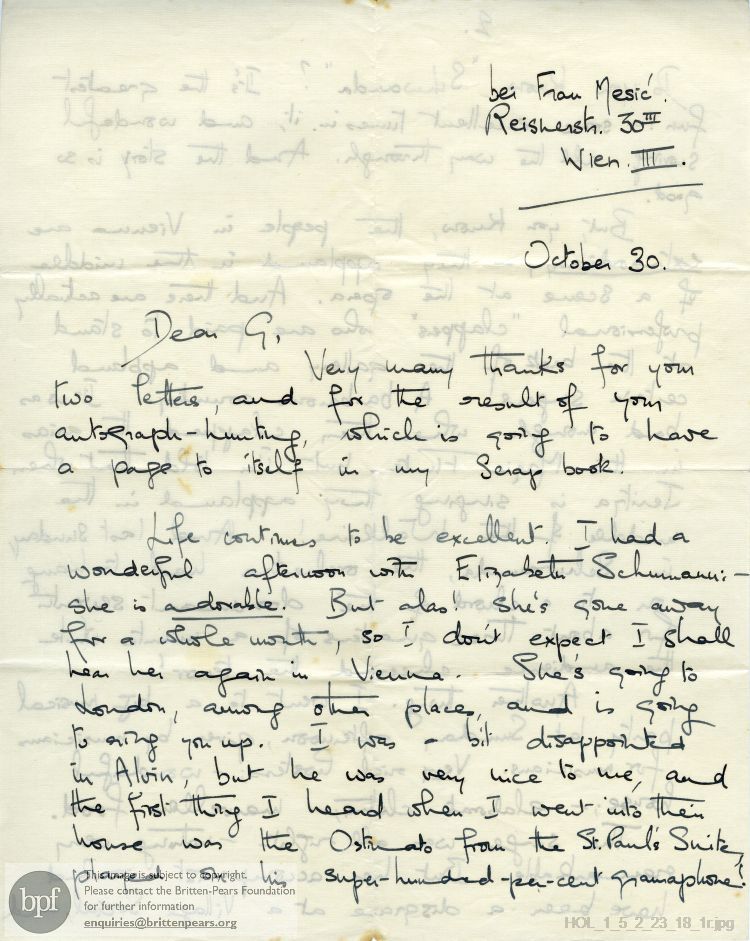 bei Frau Mesić.
Reisnerstr. 30 III
Wien. III.
October 30.
Dear G,
Very many thanks for your
two letters, and for the result of your
autograph-hunting, which is going to have
a page to itself in my Scrap book.
Life continues to be excellent. I had a
wonderful afternoon with Elizabeth Schumann:-
she is adorable. But alas! She's gone away
for a whole month, so I don't expect I shall
hear her again in Vienna. She's going to
London, among other places, and is going
to ring you up. I was a bit disappointed
in Alvin, but he was very nice to me, and
the first thing I heard when I went into their
house was the Ostinato from the St. Paul's Suite,
played on his super-hundred-per-cent gramaphone!
bpf
This image is subject to copyright.
Please contact the Britten-Pears Foundation
for further information
enquiries@brittenpears.org
HOL_1_5_2_23_18_1r.jpg